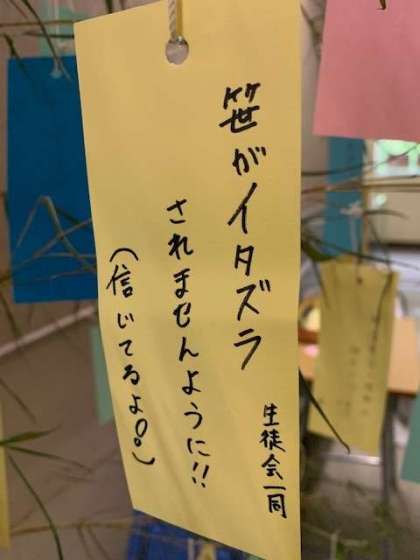 笹がイタズラ
されませんように!!
(信じてるよ!)
生徒会一同